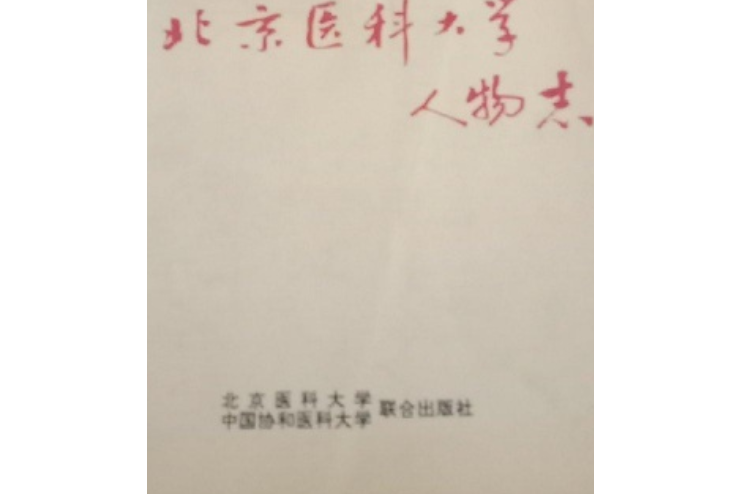 北京医科大学
人物志
北京医科大学
中国协和医科大学 联合出版社